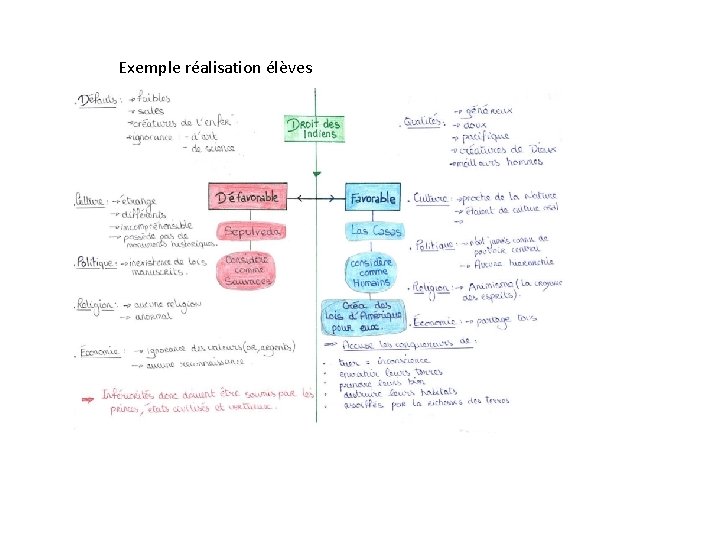 Exemple réalisation élèves
Droit des
Indiens
. Défauts : → faibles
→ sales
→ créatures de l'enfer
→ ignorance → d'art
→ de science
. Qualités . → généreux
→ doux
→ pacifique
→ créatures de Dieux
→ meilleurs hommes
Défavorable
Favorable
Sepulveda
Las Casas
Considéré
comme
Sauvages
considère
comme
Humains
Créa des
lois d'Amérique
pour eux.
. Culture : → étrange
→ différents
→ incompréhensible
→ possède pas de
monuments historiques.
. Politique : → inexistence de lois
manuscrits.
. Religion : → aucune religion
→ anormal
. Economie : → ignorance des valeurs (or, argents)
→ aucune reconnaissance
⇒ Infériorités donc doivent être soumis par les
princes, états civilisés et vertueux.
. Culture : → proche de la Nature
→ étaient de culture oral
→
. Politique : → jamais connu de
pouvoir central
→ Aucune hierarchie
. Religion : → Animisme (la croyance
des esprits).
. Economie : → partage tous
⇒ Accuse les conquereurs de :
. tuer = inconscience
. envahir leurs terres
. prendre leurs bien
. detruire leurs habitats
. assoiffés par la richesses des terres